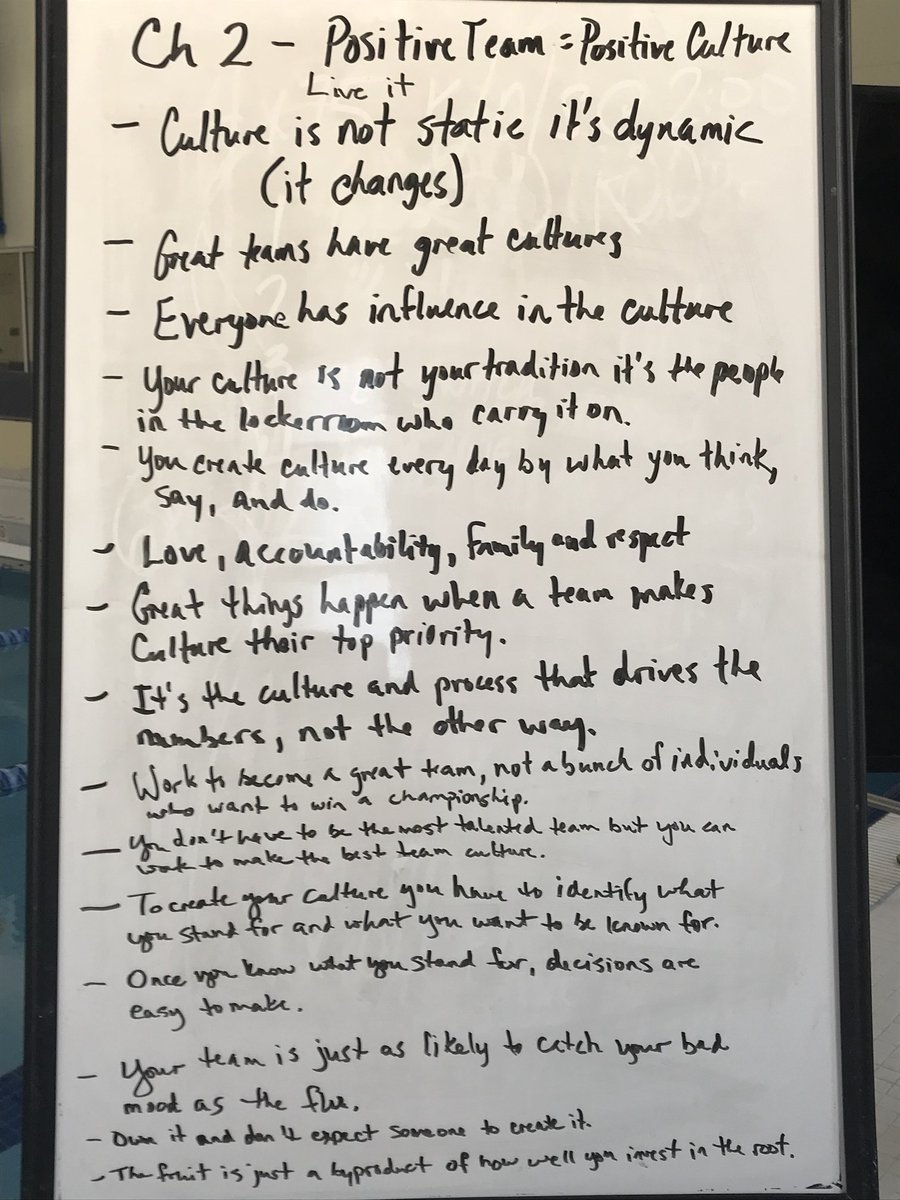 Ch 2 - Positive Team = Positive Culture
Live it
- Culture is not static it's dynamic
(it changes)
- Great teams have great cultures
- Everyone has influence in the culture
- Your culture is not your tradition it's the people
in the lockerroom who carry it on.
- You create culture every day by what you think,
say, and do.
- Love, accountability, family and respect
- Great things happen when a team makes
Culture their top priority.
- It's the culture and process that drives the
numbers, not the other way.
- Work to become a great team, not a bunch of individuals
who want to win a championship.
- You don't have to be the most talented team but you can
work to make the best team culture.
- To create your culture you have to identify what
you stand for and what you want to be known for.
- Once you know what you stand for, decisions are
easy to make.
- Your team is just as likely to catch your bad
mood as the flu.
- Own it and don't expect someone to create it.
- The fruit is just a byproduct of how well you invest in the root.